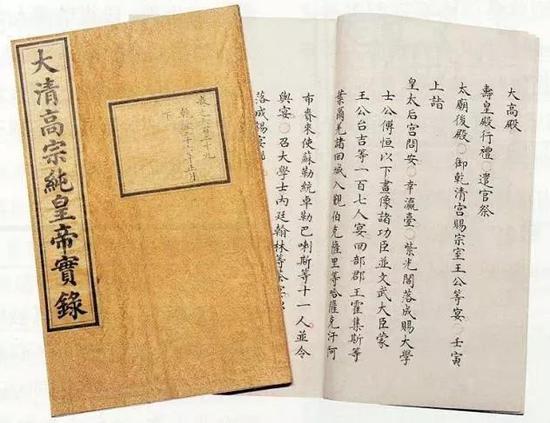 大清高宗純皇帝實錄
乾隆二十六年正月
下
大高殿
壽皇殿行禮○遣官祭
太廟後殿○御乾清宮賜宗室王公等宴○壬寅
上詣
皇太后宮問安○幸瀛臺○紫光閣落成賜大學
士公傅恒以下畫像諸功臣並文武大臣蒙
王公台吉等一百七人宴回部郡王霍集斯等
葉爾羌諸回城入覲伯克薩里等哈薩克汗阿
布賚來使蘇勒統卓勒巴喇斯等十一人並令
與宴○召大學士內廷翰林等
落成賜宴